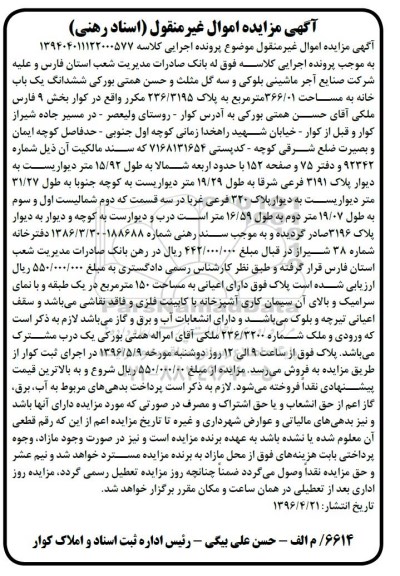 آگهی مزایده اموال غیرمنقول (اسناد رهنی)
آگهی مزایده اموال غیرمنقول موضوع پرونده اجرایی کلاسه ۱۳۹۴۰۴۰۱۱۱۲۲۰۰۰۵۷۷
به موجب پرونده اجرایی کلاسه فوق له بانک صادرات مدیریت شعب استان فارس و علیه
شرکت صنایع آجر ماشینی بلوکی و سه گل مثلث و حسن همتی بورکی ششدانگ یک باب
خانه به مساحت ۳۶۶/۰۱مترمربع به پلاک ۲۳۶/۳۱۹۵ مکرر واقع در کوار بخش ۹ فارس
ملکی آقای حسن همتی بورکی به آدرس کوار - روستای ولیعصر - در مسیر جاده شیراز
کوار و قبل از کوار - خیابان شهید راهخدا زمانی کوچه اول جنوبی - حدفاصل کوچه ایمان
و بصیرت ضلع شرقی کوچه - کدپستی ۷۱۶۸۱۳۱۶۵۴ که سند مالکیت آن ذیل شماره
۹۲۳۴۲ و دفتر ۷۵ و صفحه ۱۵۲ با حدود اربعه شمالا به طول ۱۵/۹۲ متر دیواریست به
دیوار پلاک ۳۱۹۱ فرعی شرقا به طول ۱۹/۲۹ متر دیواریست به کوچه جنوبا به طول ۳۱/۲۷
متر دیواریست به دیوار پلاک ۳۲۰۰ فرعی غربا در سه قسمت که دوم شمالیست اول و سوم
به طول ۱۹/۰۷ متر دوم به طول ۱۶/۵۹ متر است درب و دیوارست به کوچه و دیوار به دیوار
پلاک ۳۱۹۶صادر گردیده و به موجب سند رهنی شماره ۱۸۸۶۸۸-۱۳۸۶/۳/۳۰ دفترخانه
شماره ۳۸ شیراز در قبال مبلغ ۴۴۲/۰۰۰/۰۰۰ ریال در رهن بانک صادرات مدیریت شعب
استان فارس قرار گرفته و طبق نظر کارشناس رسمی دادگستری به مبلغ ۵۵۰/۰۰۰/۰۰۰ ریال
ارزیابی شده است پلاک فوق دارای اعیانی به مساحت ۱۵۰ مترمربع در یک طبقه و با نمای
سرامیک و بالای آن سیمان کاری آشپزخانه با کابینت فلزی و فاقد نقاشی می‌باشد و سقف
اعیانی تیرچه و بلوک می‌باشد و دارای انشعابات آب و برق و گاز می‌باشد لازم به ذکر است
که ورودی و ملک شماره ۲۳۶/۳۲۰۰ ملکی آقای امراله همتی بورکی یک درب مشترک
می‌باشد. پلاک فوق از ساعت ۹ الی ۱۲ روز دوشنبه مورخه ۱۳۹۶/۵/۹ در اجرای ثبت کوار از
طریق مزایده به فروش می‌رسد. مزایده از مبلغ ۵۵۰/۰۰۰/۰۰ ریال شروع و به بالاترین قیمت
پیشنهادی نقدا فروخته می‌شود. لازم به ذکر است پرداخت بدهی‌های مربوط به آب، برق،
گاز اعم از حق انشعاب و یا حق اشتراک و مصرف در صورتی که مورد مزایده دارای آنها باشد
و نیز بدهی‌های مالیاتی و عوارض شهرداری و غیره تا تاریخ مزایده اعم از این که رقم قطعی
آن معلوم شده یا نشده باشد به عهده برنده مزایده است و نیز در صورت وجود مازاد، وجوه
پرداختی بابت هزینه‌های فوق از محل مازاد به برنده مزایده مسترد خواهد شد و نیم عشر
و حق مزایده نقداً وصول می‌گردد ضمناً چنانچه روز مزایده تعطیل رسمی گردد، مزایده روز
اداری بعد از تعطیلی در همان ساعت و مکان مقرر برگزار خواهد شد.
تاریخ انتشار: ۱۳۹۶/۴/۲۱
۶۶۱۴/ م الف - حسن علی بیگی - رئیس اداره ثبت اسناد و املاک کوار